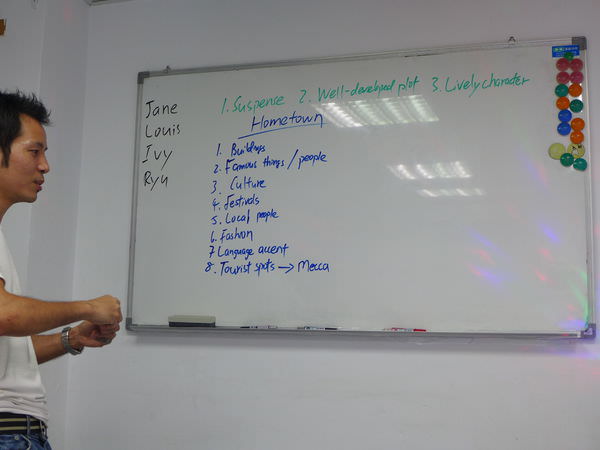 1. Suspense 2. Well-developed plot 3. Lively character
Jane
Louis
Ivy
Ryu
Hometown
1. Buildings
2. Famous things / people
3. Culture
4. Festivals
5. Local people
6. Fashion
7 Language accent
8. Tourist spots → Mecca